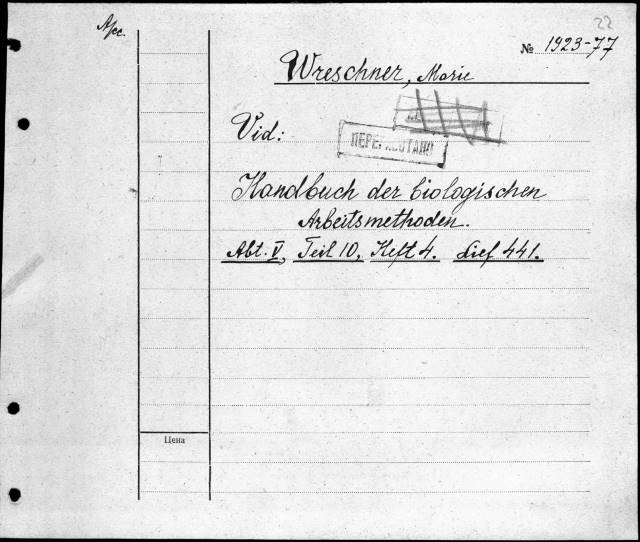 22
№ 1923-77
Wreschner, Marie
Vid:
Handbuch der biologischen
Arbeitsmethoden.
Abt. V, Teil 10, Heft 4. Lief 441.
Цена